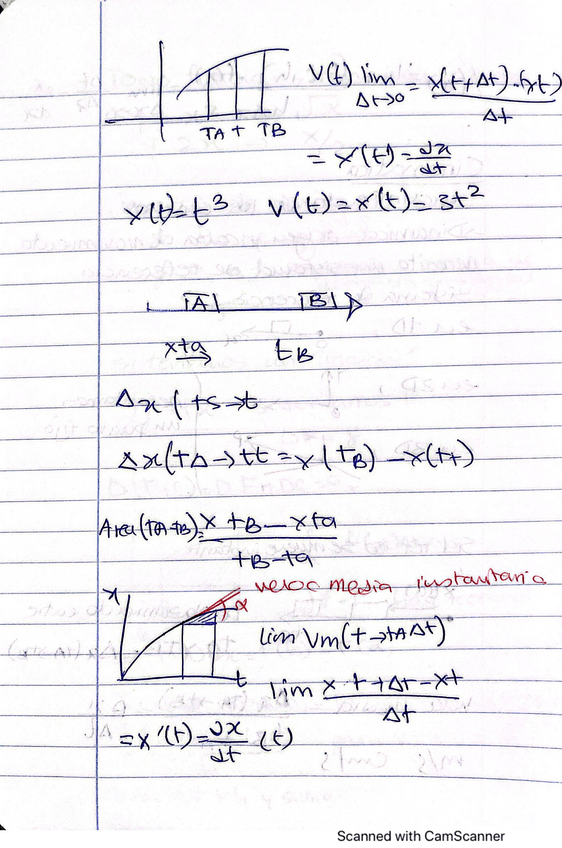 V(t) lim Δt→0 = x(t+Δt)-(xt) / Δt
TA t TB
= x'(t) = dx/dt
x(t)= t³ V(t) = x'(t) = 3t²
|A| |B|
x ta → tB
Δx (ts→t
Δx(tΔ → tt = x(tB) - x(tt)
Area(TA→tB)= x tB - x ta / tB - ta
veloc media instantania
x α
lim Vm(t→tA Δt)
t
lim x t + Δt - xt / Δt
= x'(t) = dx/dt (t)
Scanned with CamScanner